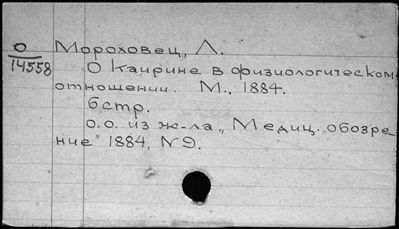 О Мороховец, Л.
14558
О Каирине в физиологическом
отношении. М., 1884.
6 стр.
о.о. из ж-ла „Медиц. обозре-
ние" 1884, № 9.